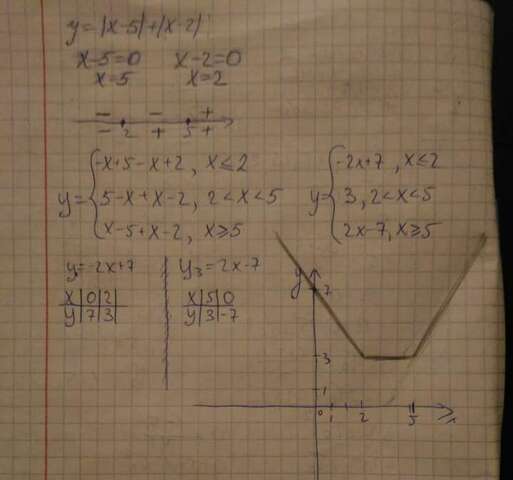 y = |x-5| + |x-2|
x-5=0 x-2=0
x=5 x=2
− − +
2 5
− + +
y = { -x+5-x+2, x≤2
5-x+x-2, 2<x<5
x-5+x-2, x≥5
y = { -2x+7, x≤2
3, 2<x<5
2x-7, x≥5
y₁=-2x+7
x | 0 | 2
y | 7 | 3
y₃=2x-7
x | 5 | 0
y | 3 | -7
y
7
3
1
0 1 2 5 x